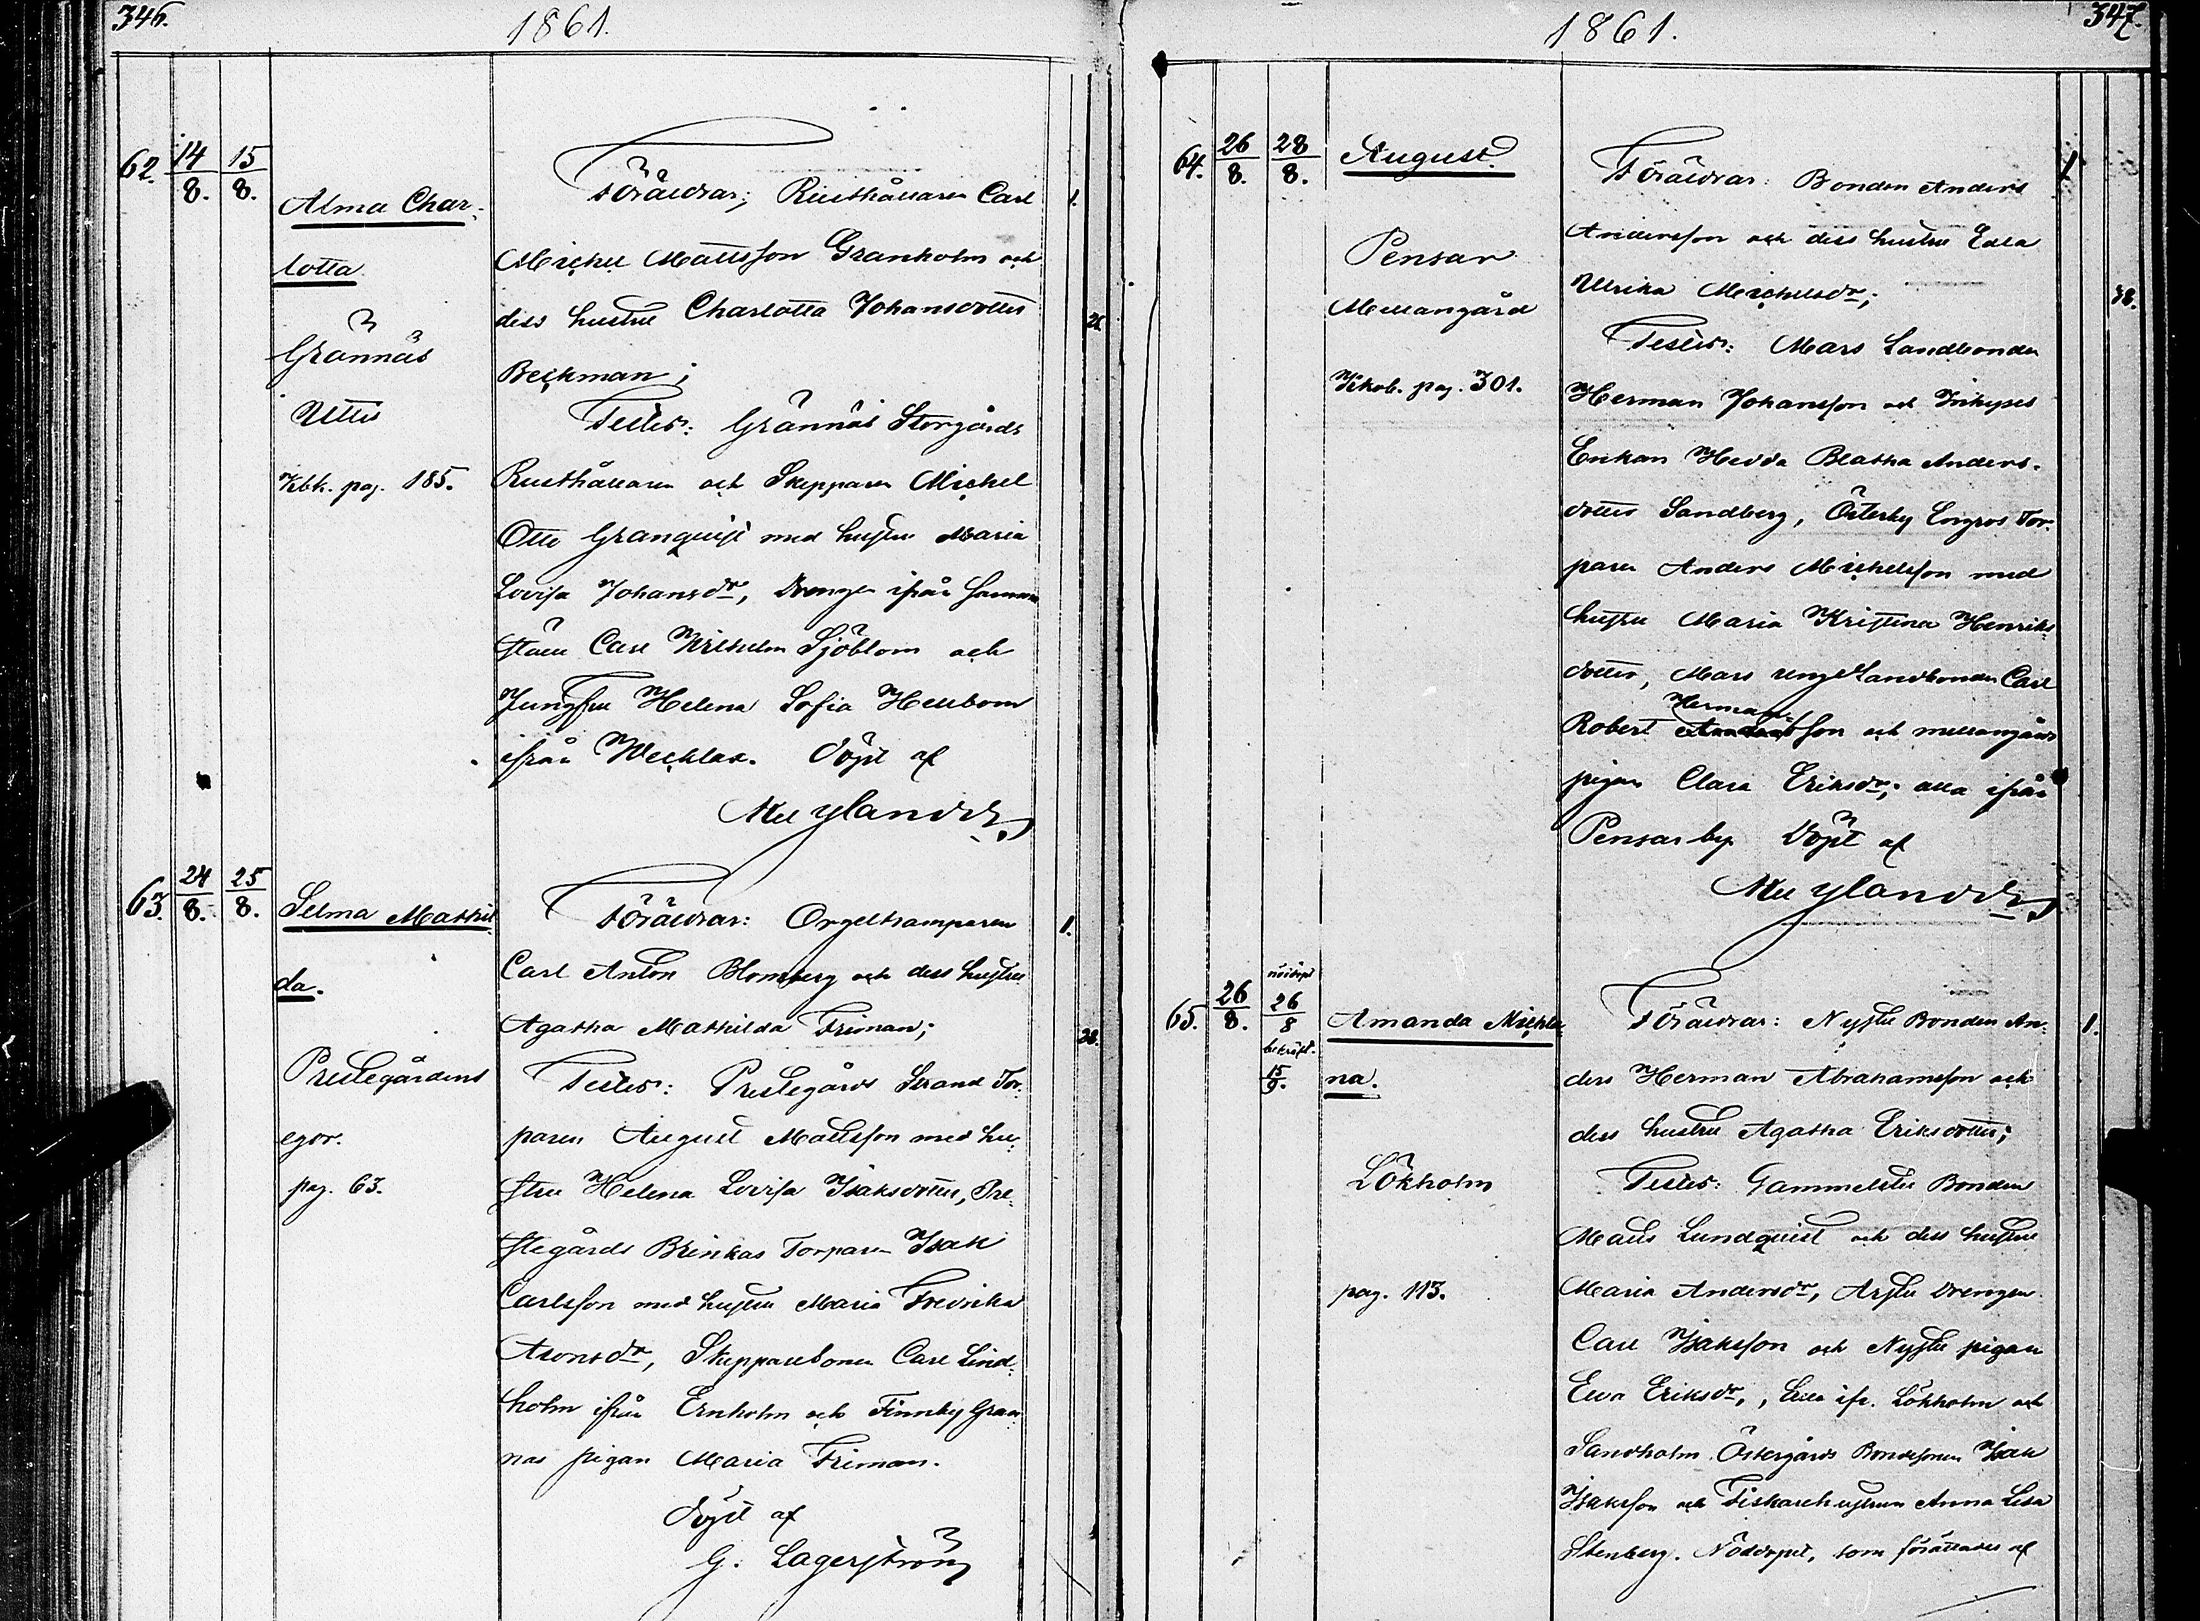 346.
1861.
62. 14/8. 15/8.
Alma Char-
lotta
Grännäs
Uttis
Kbk. pag. 185.
Föräldrar; Rusthållaren Carl
Michel Mattsson Granholm och
dess hustru Charlotta Johansdotter
Beckman;
Testes: Grännäs Storgårds
Rusthållaren och Skepparen Michel
Otto Granquist med hustru Maria
Lovisa Johansdr, Drengen ifrån
Carl Wilhelm Sjöblom och
Jungfru Helena Sofia Hellbom
ifrån Wecklax. Döpt af
Nylander
1.
63. 24/8. 25/8.
Selma Mathil-
da.
Prestegårdens
egor.
pag. 63.
Föräldrar: Orgeltramparen
Carl Anton Blomberg och dess hustru
Agatha Mathilda Friman;
Testes: Prestegårds Strand Tor-
paren August Mattsson med hu-
stru Helena Lovisa Isaksdotter, Pre-
stegårds Brinkas Torparen Isak
Carlsson med hustru Maria Fredrika
Aronsdr, Skepparesonen Carl Lind-
holm ifrån Ernholm och Finnby Gran-
nas pigan Maria Friman.
Döpt af
G. Lagerström
1.
347.
1861.
64. 26/8. 28/8.
August.
Pensar
Mellangård
Kkob. pag. 301.
Föräldrar: Bonden Anders
Andersson och dess hustru Edla
Ulrika Michelsdr;
Testes: Mars Landbonden
Herman Johansson och
Enkan Hedda Beatha Anders-
dotter Sandberg, Österby Engros Tor-
paren Anders Michelsson med
hustru Maria Kristina Henriks-
dotter, Mars unge Landbonden Carl
Robert Hermansson och mellangårds
pigan Clara Eriksdr; alla ifrån
Pensar by. Döpt af
Nylander
1
38.
65. 26/8. nöddöpt 26/8 bekräft. 15/9.
Amanda Michli-
na.
Lökholm
pag. 113.
Föräldrar: Nystu Bonden An-
ders Herman Abrahamsson och
dess hustru Agatha Eriksdotter;
Testes: Gammelstu Bonden
Matts Lundquist och dess hustru
Maria Andersdr, Arstu Drengen
Carl Isaksson och Nystu pigan
Eva Eriksdr, alla ifr. Lökholm och
Sandholm Östergårds Bondesonen Isak
Isaksson och Fiskarehustrun Anna Lisa
Stenberg. Nöddopet, som förättades af
1.